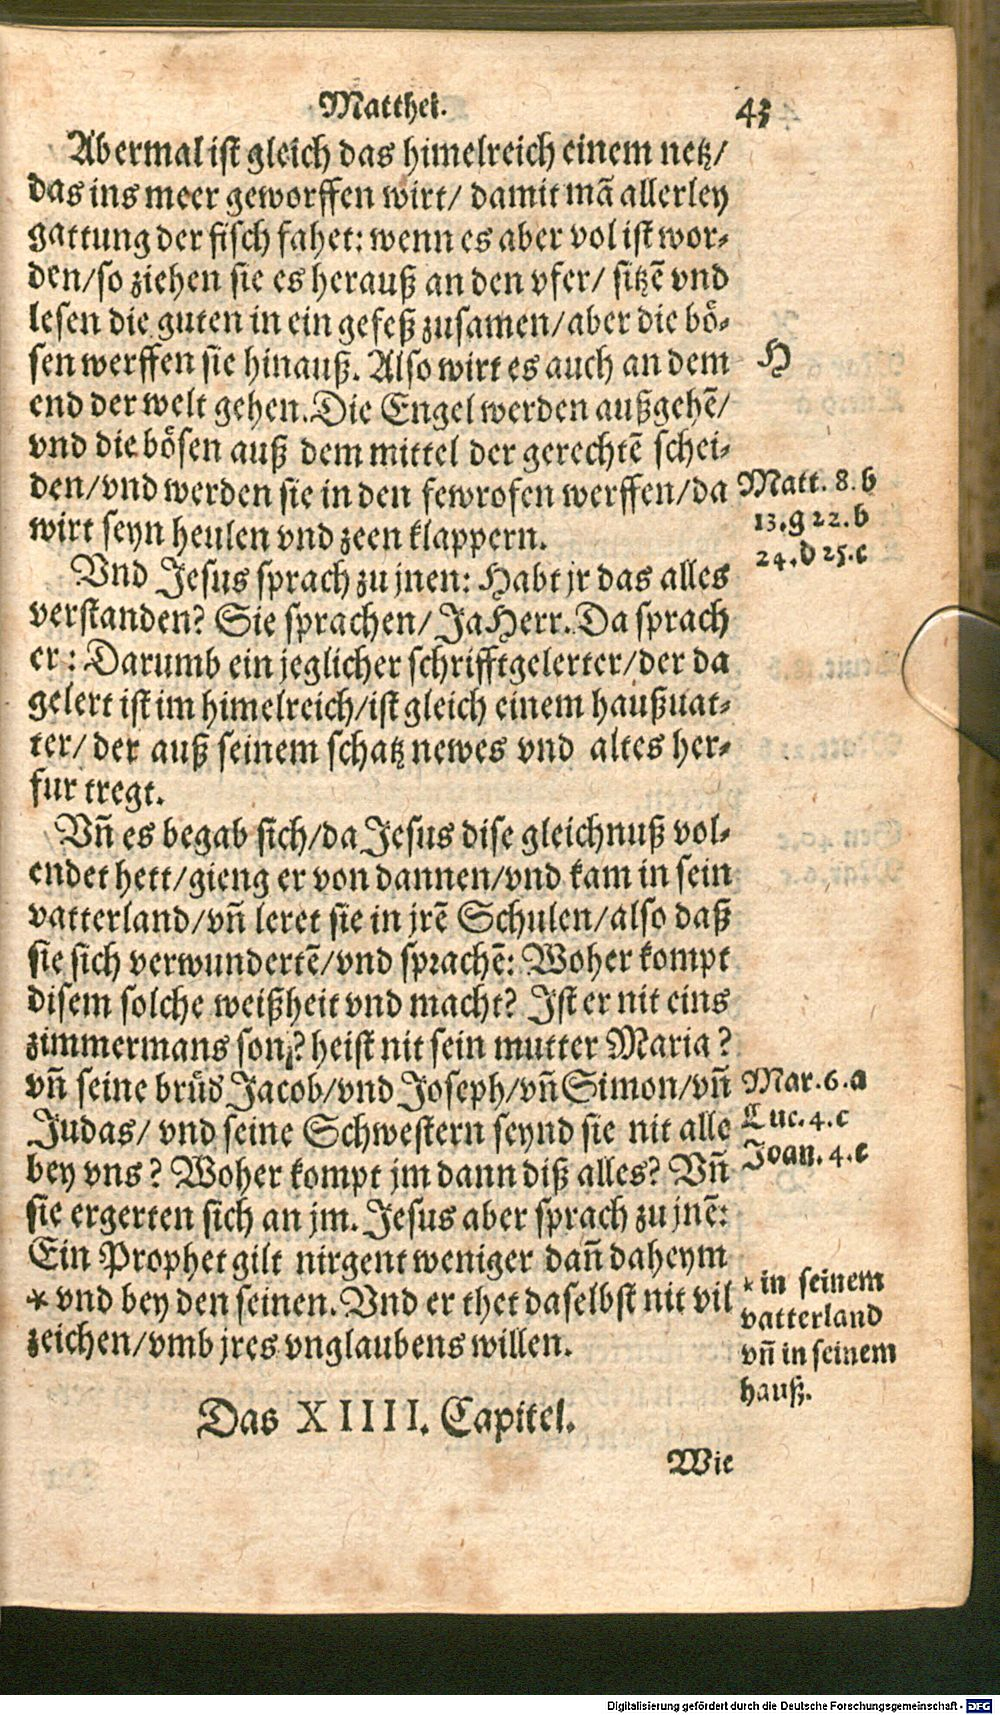 Matthei. 43
Abermal ist gleich das himelreich einem netz/
das ins meer geworffen wirt/ damit mā allerley
gattung der fisch fahet: wenn es aber vol ist wor-
den/so ziehen sie es herauß an den vfer/ sitzē vnd
lesen die guten in ein gefeß zusamen/aber die bö-
sen werffen sie hinauß. Also wirt es auch an dem
H
end der welt gehen. Die Engel werden außgehē/
vnd die bösen auß dem mittel der gerechtē schei-
den/vnd werden sie in den fewrofen werffen/da
wirt seyn heulen vnd zeen klappern.
Matt. 8. b
13.g 22.b
24.d 25.c
Vnd Jesus sprach zu jnen: Habt jr das alles
verstanden? Sie sprachen/ Ja Herr. Da sprach
er: Darumb ein jeglicher schrifftgelerter/der da
gelert ist im himelreich/ist gleich einem haußuat-
ter/ der auß seinem schatz newes vnd altes her-
fur tregt.
Vn̄ es begab sich/da Jesus dise gleichnuß vol-
endet hett/gieng er von dannen/vnd kam in sein
vatterland/vn̄ leret sie in jrē Schulen/also daß
sie sich verwundertē/vnd sprachē: Woher kompt
disem solche weißheit vnd macht? Ist er nit eins
zimmermans son? heist nit sein mutter Maria?
vn̄ seine brüd Jacob/vnd Joseph/vn̄ Simon/vn̄
Judas/ vnd seine Schwestern seynd sie nit alle
bey vns? Woher kompt jm dann diß alles? Vn̄
sie ergerten sich an jm. Jesus aber sprach zu jnē:
Ein Prophet gilt nirgent weniger dan̄ daheym
* vnd bey den seinen. Vnd er thet daselbst nit vil
zeichen/vmb jres vnglaubens willen.
Mar. 6. a
Luc. 4. c
Joan. 4. c
* in seinem
vatterland
vn̄ in seinem
hauß.
Das XIIII. Capitel.
Wie
Digitalisierung gefördert durch die Deutsche Forschungsgemeinschaft - DFG